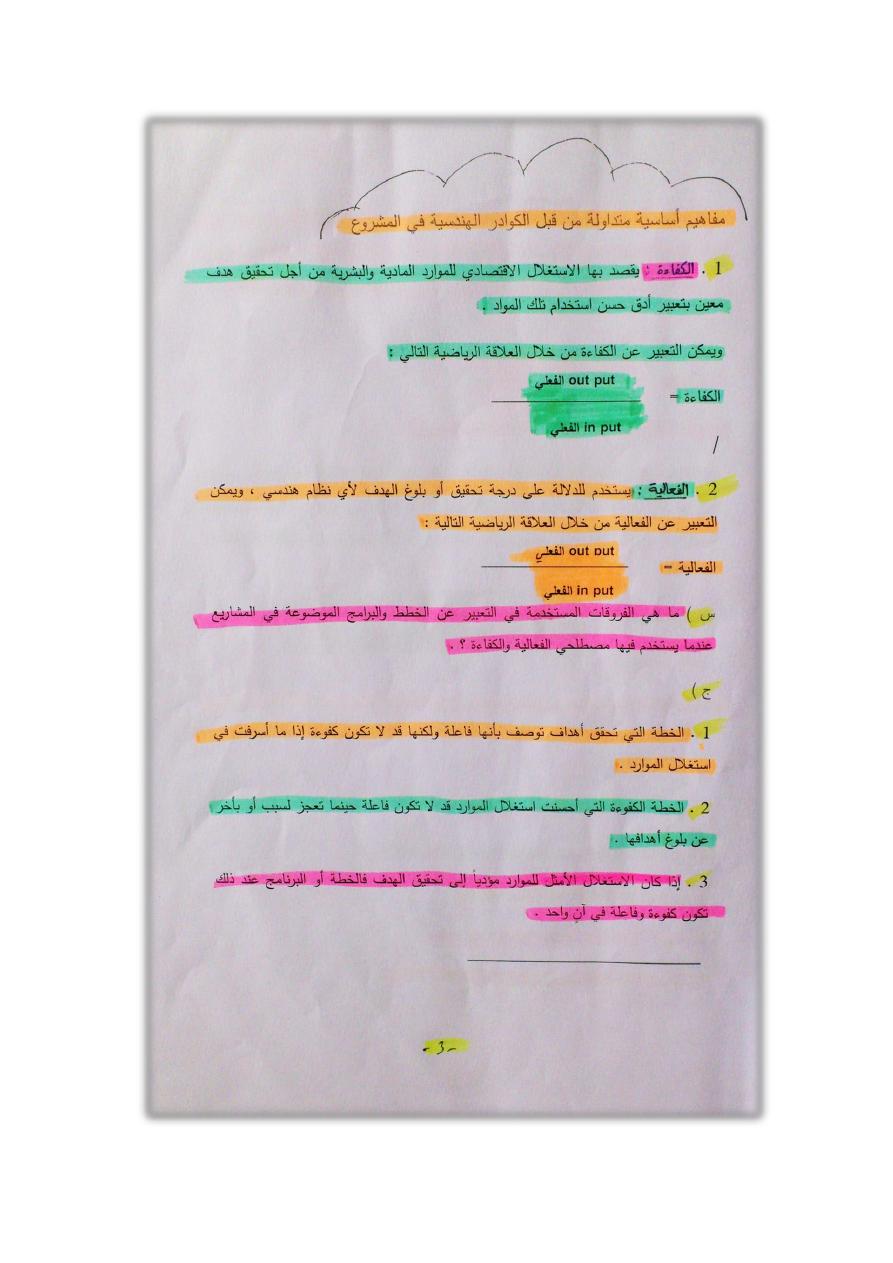 مفاهيم أساسية متداولة من قبل الكوادر الهندسية في المشروع
1 . الكفاءة : يقصد بها الاستغلال الاقتصادي للموارد المادية والبشرية من أجل تحقيق هدف
معين بتعبير أدق حسن استخدام تلك المواد .
ويمكن التعبير عن الكفاءة من خلال العلاقة الرياضية التالي :
out put الفعلي
الكفاءة =
in put الفعلي
/
2 . الفعالية : يستخدم للدلالة على درجة تحقيق أو بلوغ الهدف لأي نظام هندسي ، ويمكن
التعبير عن الفعالية من خلال العلاقة الرياضية التالية :
out put الفعلي
الفعالية =
in put الفعلي
س ) ما هي الفروقات المستخدمة في التعبير عن الخطط والبرامج الموضوعة في المشاريع
عندما يستخدم فيها مصطلحي الفعالية والكفاءة ؟ .
ج )
1 . الخطة التي تحقق أهداف توصف بأنها فاعلة ولكنها قد لا تكون كفوءة إذا ما أسرفت في
استغلال الموارد .
2 . الخطة الكفوءة التي أحسنت استغلال الموارد قد لا تكون فاعلة حينما تعجز لسبب أو بأخر
عن بلوغ أهدافها .
3 . إذا كان الاستغلال الأمثل للموارد مؤدياً إلى تحقيق الهدف فالخطة أو البرنامج عند ذلك
تكون كفوءة وفاعلة في آنٍ واحد .
-3-